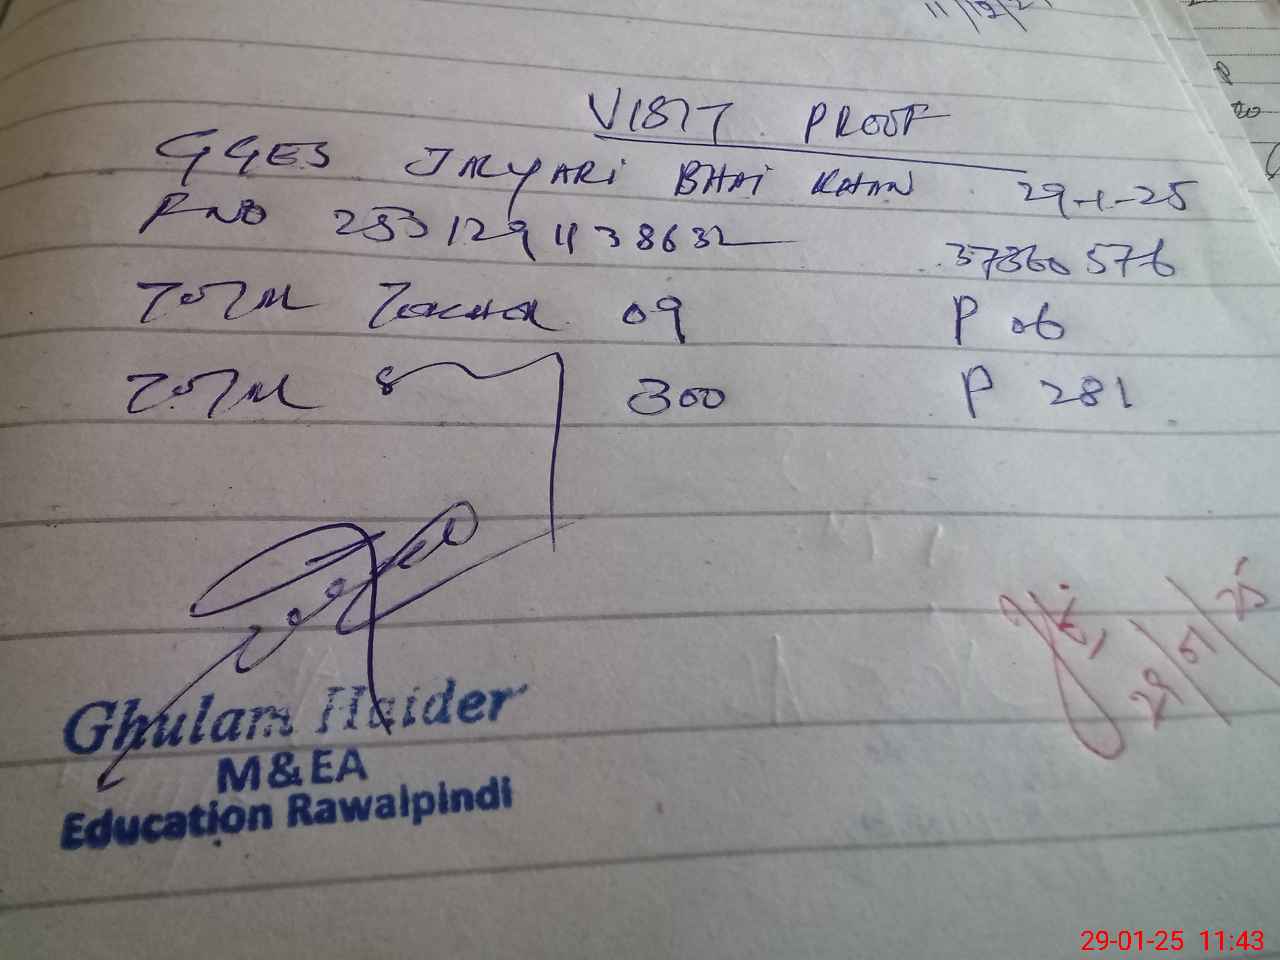 11/12/2
VISIT PROOF
GGES JMYARi BHAi KHAN 29-1-25
P NO 2531291138632 37360576
TOTAL TEACHER 09 P 06
TOTAL 300 P 281
29/01/25
Ghulam Haider
M&EA
Education Rawalpindi
29-01-25 11:43